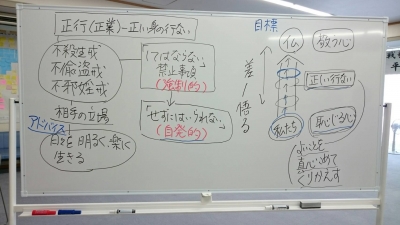 正行(正業)-正しい身の行ない
不殺生戒
不偸盗戒
不邪婬戒
「してはならない」
禁止事項
(強制的)
相手の立場
アドバイス
「せずにはいられない」
(自発的)
日々を明るく、楽しく
生きる
目標
仏
敬う心
差/悟る
正しい行ない
私たち
恥じる心
よいことを
真心こめて
くりかえす